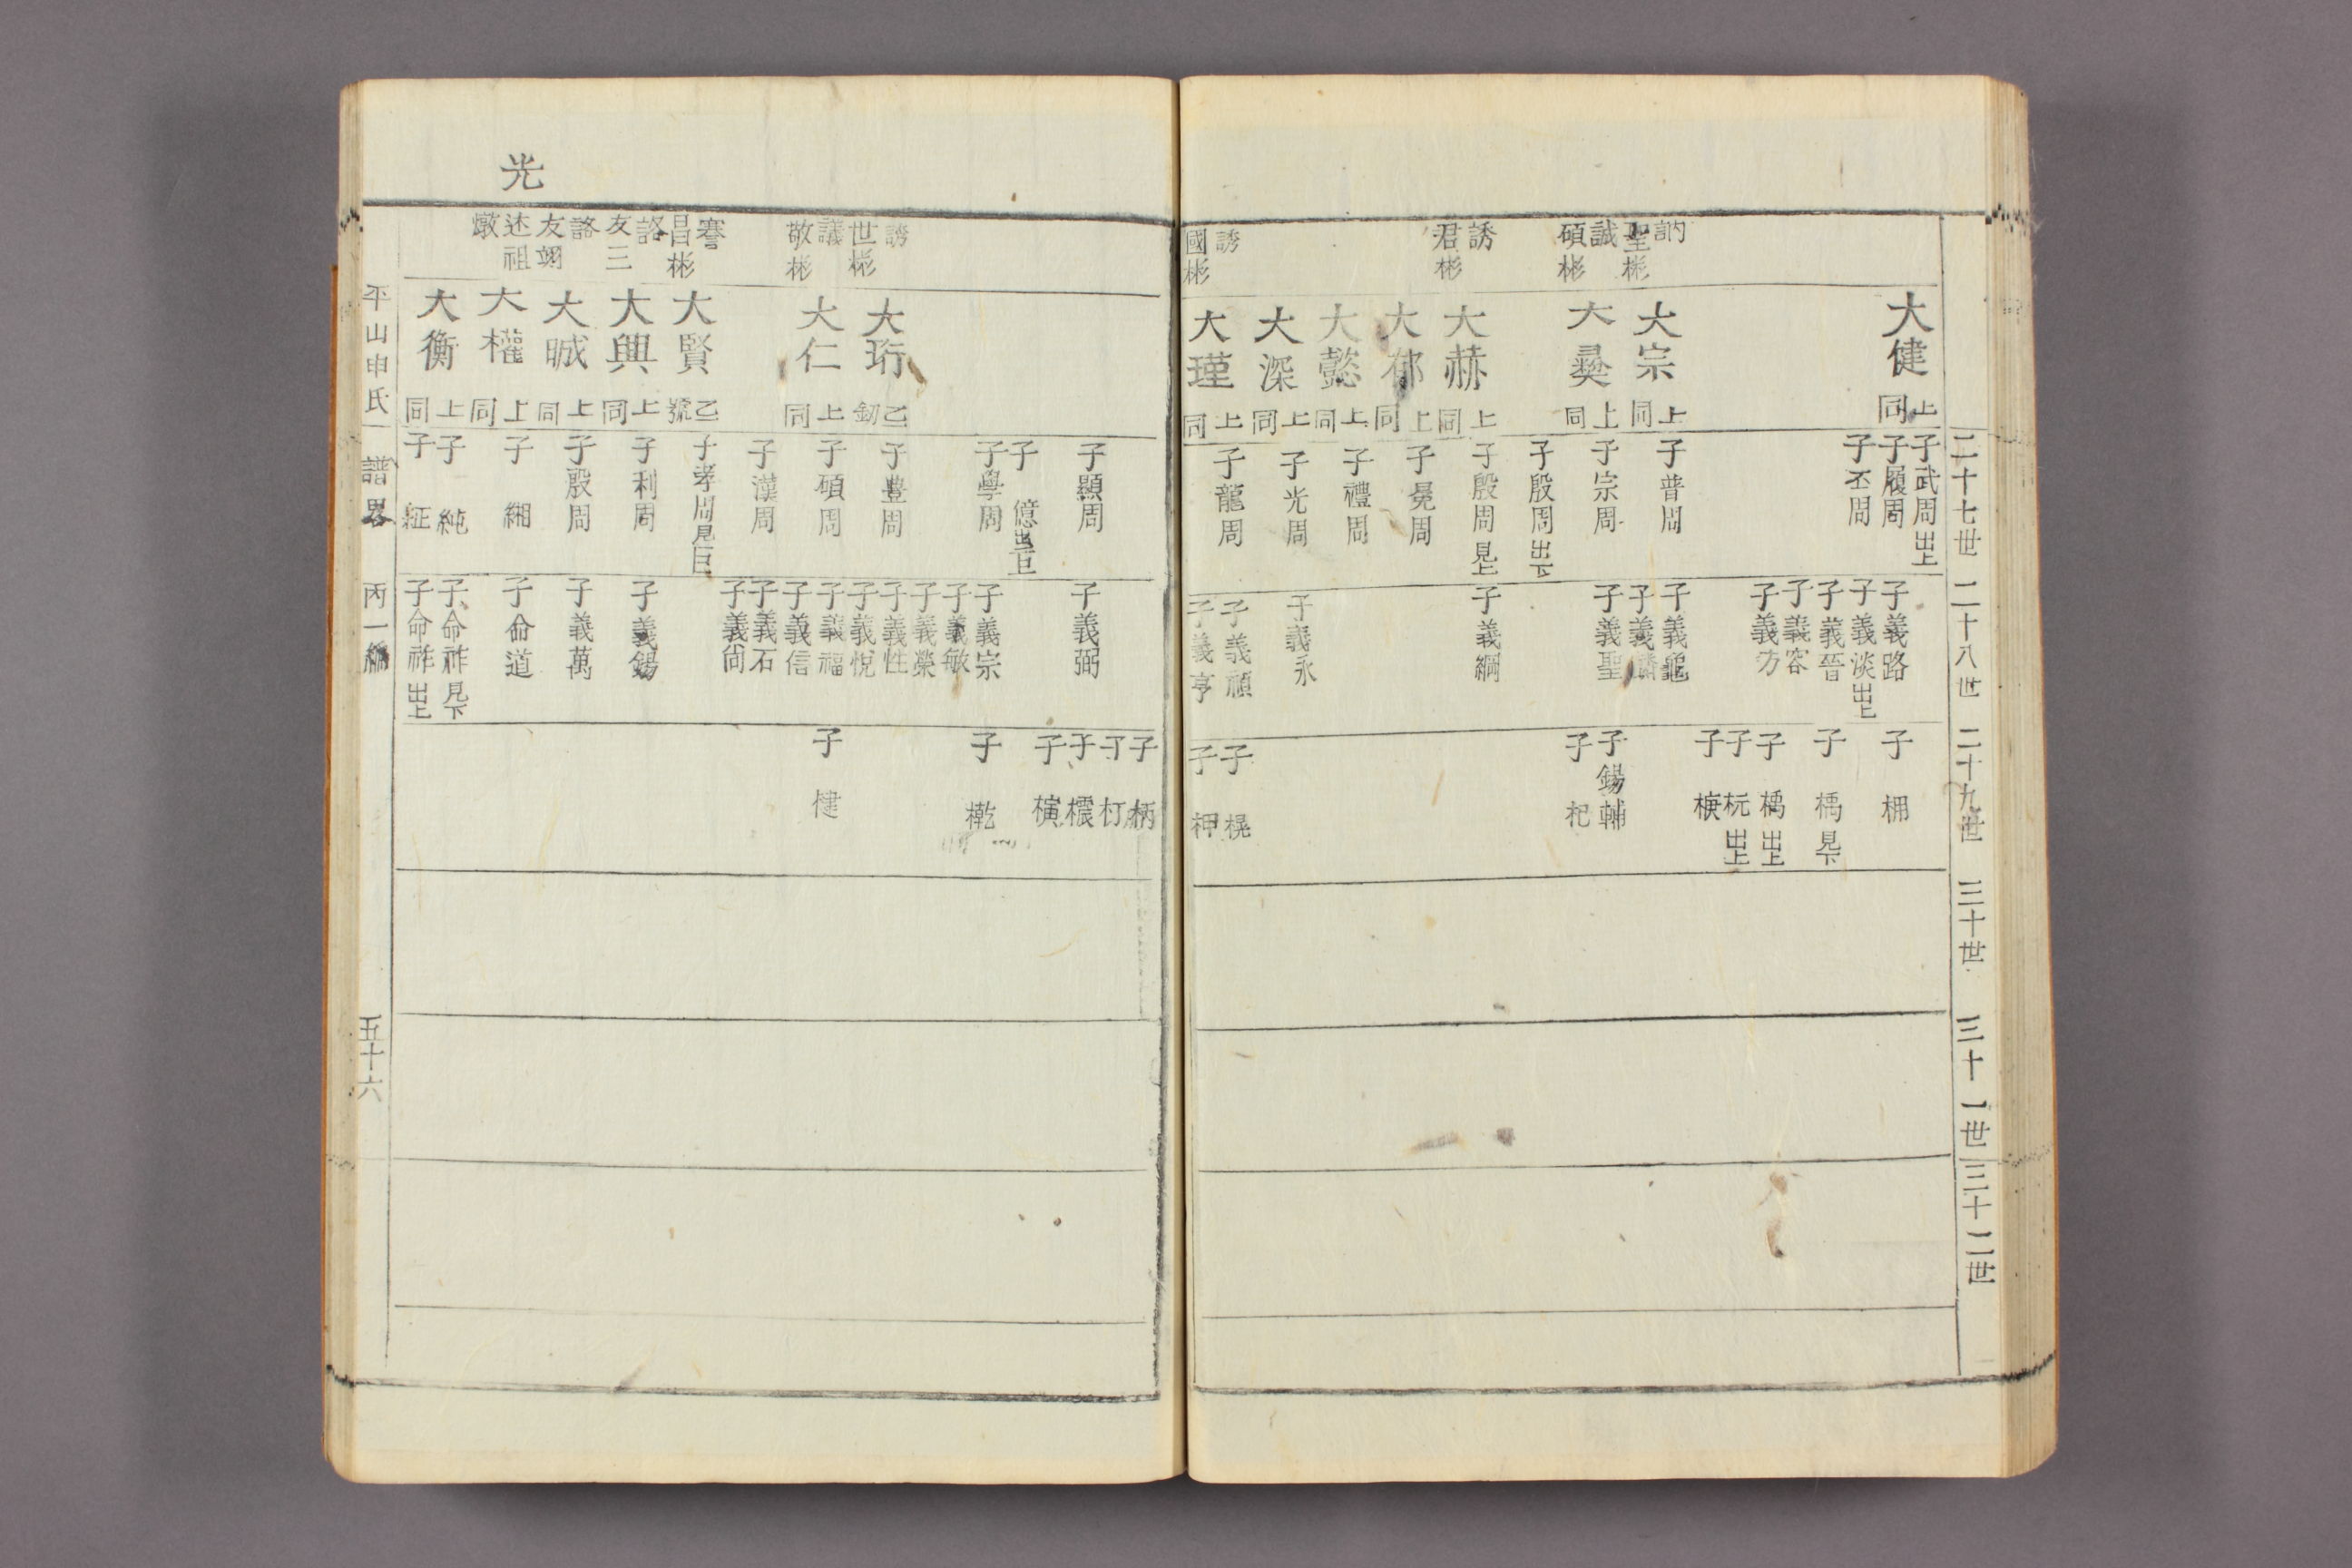 二十七世
二十八世
二十九世
三十世
三十一世
三十二世
訥 聖彬
誠 碩彬
誘 君彬
誘 國彬
大健 上同
大宗 上同
大彛 上同
大赫 上同
大郁 上同
大懿 上同
大深 上同
大瑾 上同
子武周出上
子履周
子丕周
子普周
子宗周
子殷周出下
子殷周見上
子冕周
子禮周
子光周
子龍周
子義路
子義淡出上
子義晉
子義容
子義方
子義龜
子義麟
子義聖
子義綱
子義永
子義頑
子義亨
子棚
子楀見下
子楀出上
子杬出上
子㮠
子錫輔
子杞
子榥
子柙
光
誘 世彬
議 敬彬
謇 昌彬
詻 友三
詻 友翊
述祖
燉
大珩 乙釰
大仁 上同
大賢 乙號
大興 上同
大晠 上同
大權 上同
大衡 上同
子顯周
子億出巨
子學周
子豊周
子碩周
子漢周
子孝周見巨
子利周
子殷周
子緗
子純
子䋊
子義弼
子義宗
子義敏
子義榮
子義性
子義悅
子義福
子義信
子義石
子義尙
子義錫
子義萬
子命道
子命祚見下
子命祚出上
子柄
子朾
子橩
子橫
子榦
子楗
平山申氏 譜畧 丙一編 五十六